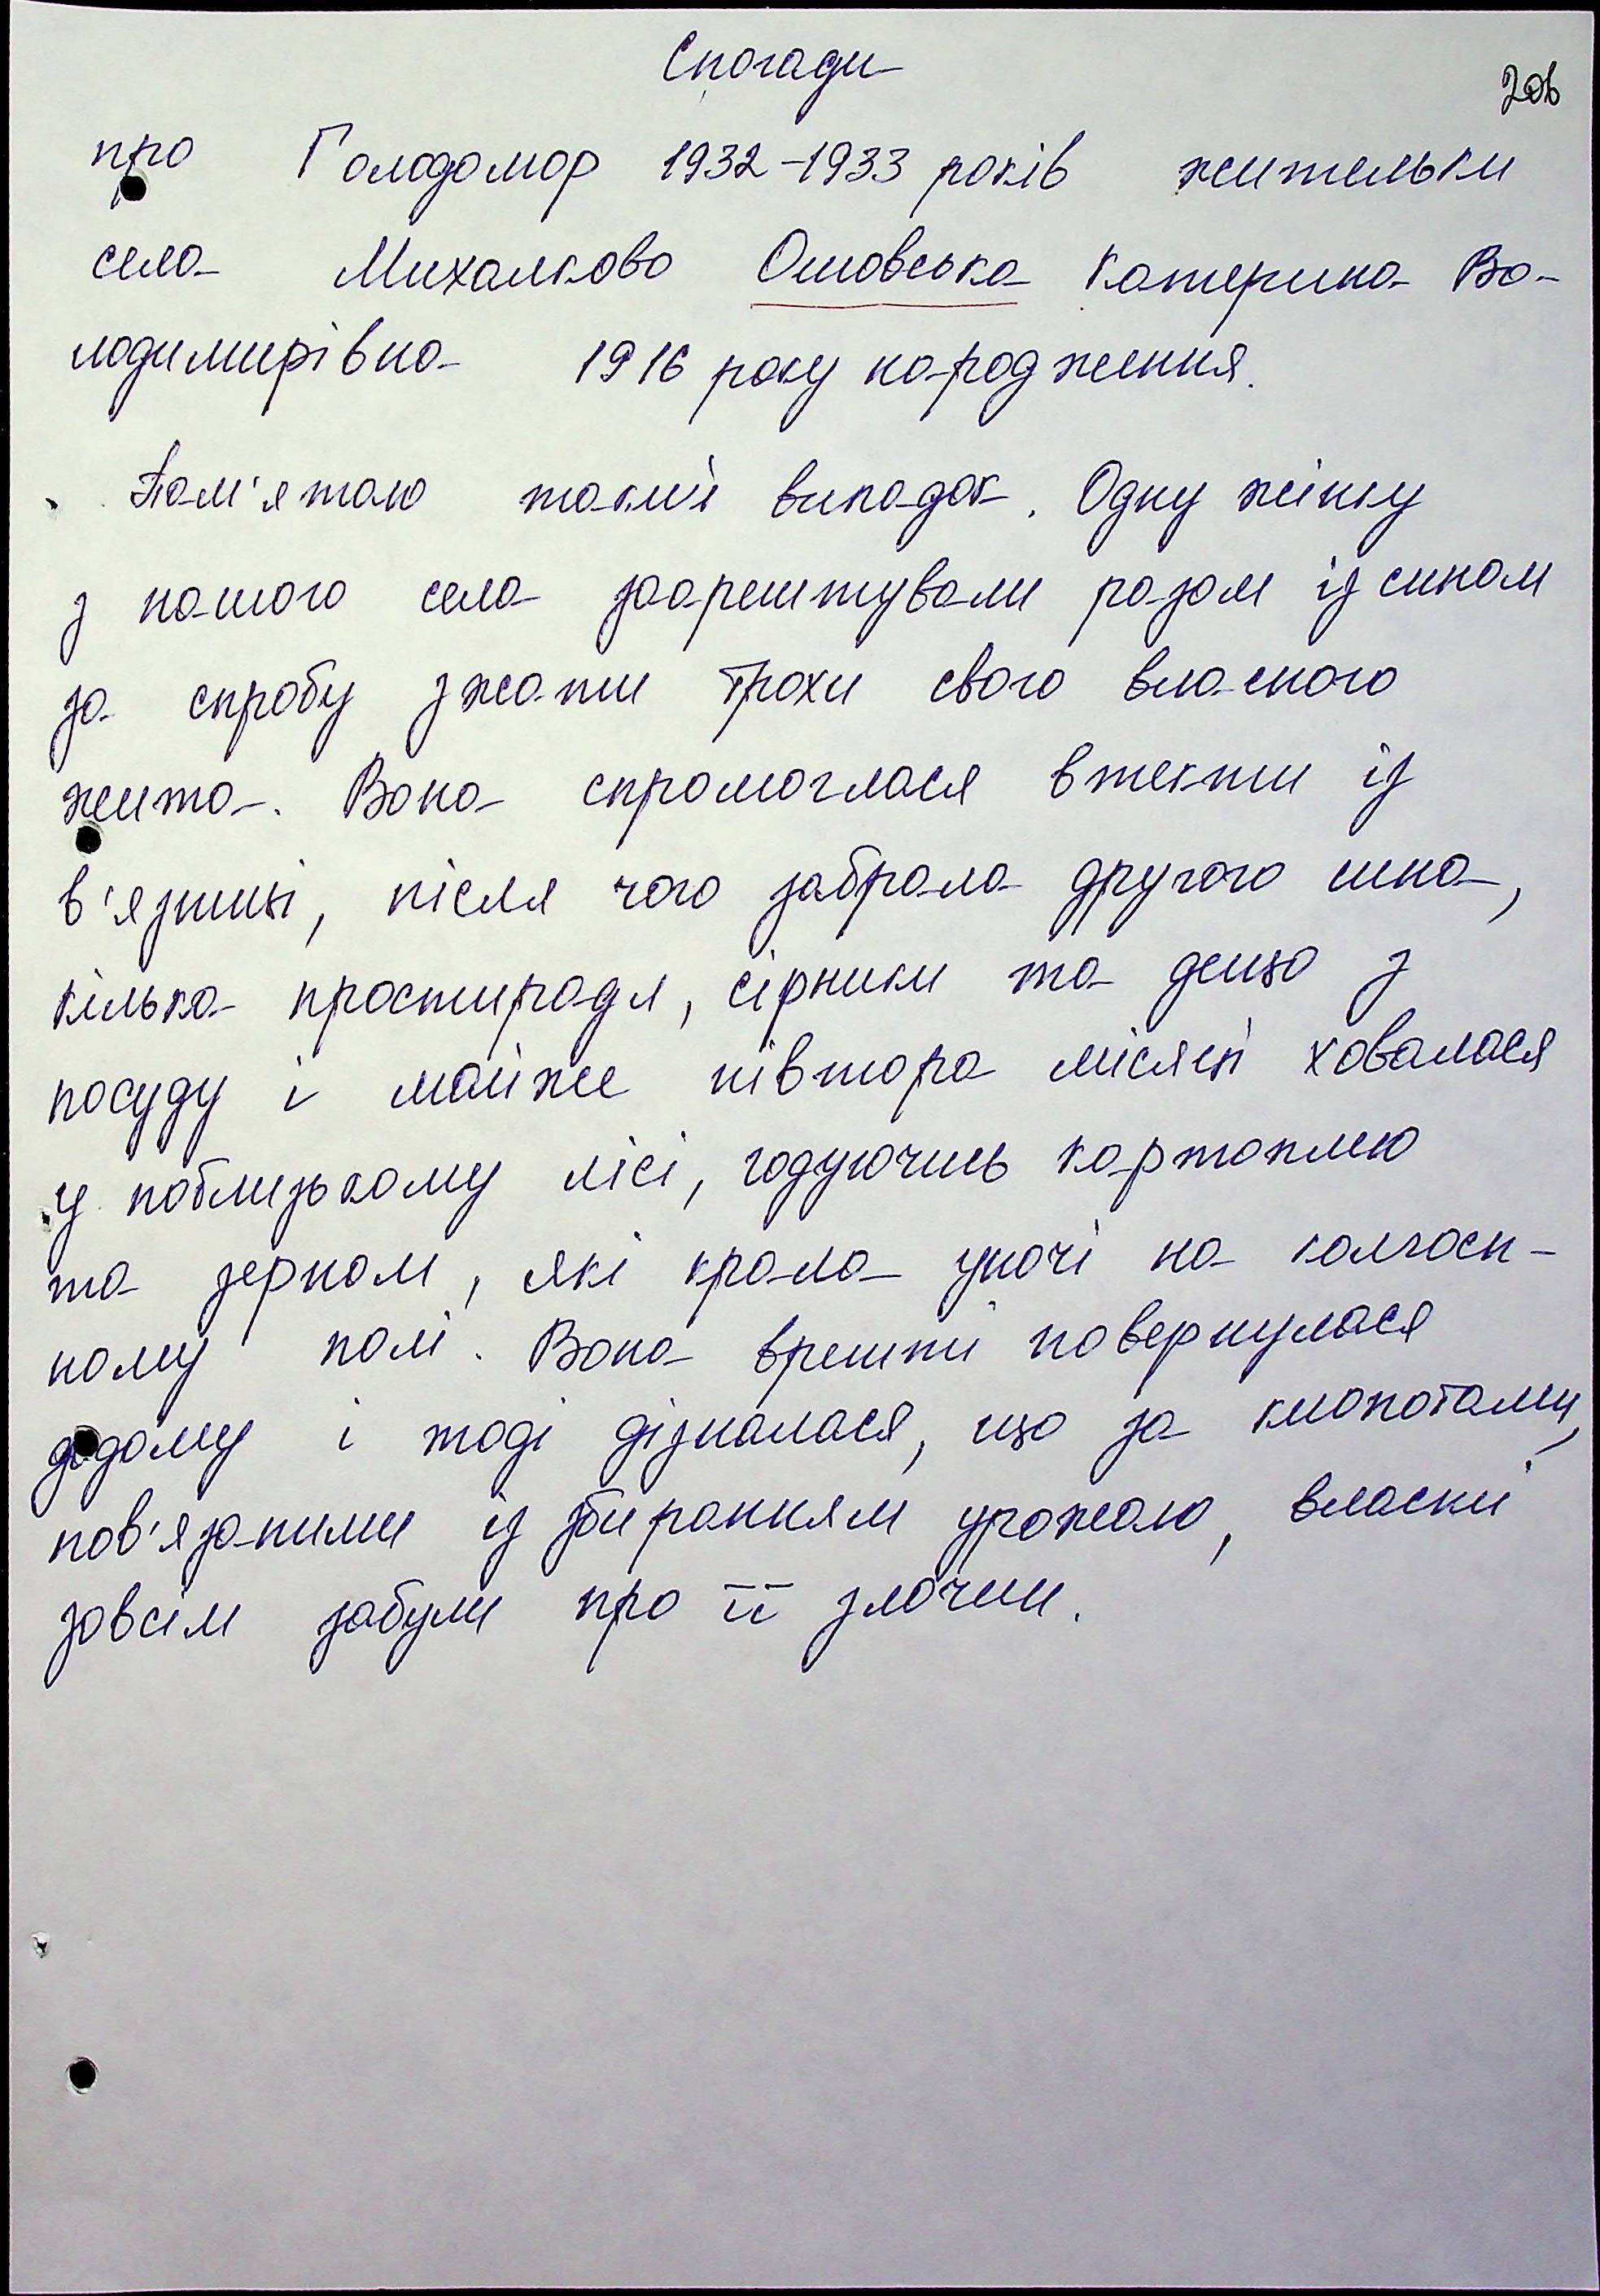 Спогади
206
про Голодомор 1932-1933 років жительки
села Михалково Ошовська Катерина Во-
лодимирівна 1916 року народження.
Пам'ятаю такий випадок. Одну жінку
з нашого села заарештували разом із сином
за спробу зжати трохи свого власного
жита. Вона спромоглася втекти із
в'язниці, після чого забрала другого сина,
кілька простирадл, сірники та дещо з
посуду і майже півтора місяці ховалася
у поблизькому лісі, годуючись картоплею
та зерном, які крала уночі на колгосп-
ному полі. Вона врешті повернулася
додому і тоді дізналася, що за клопотами,
пов'язаними із збиранням урожаю, власті
зовсім забули про її злочин.